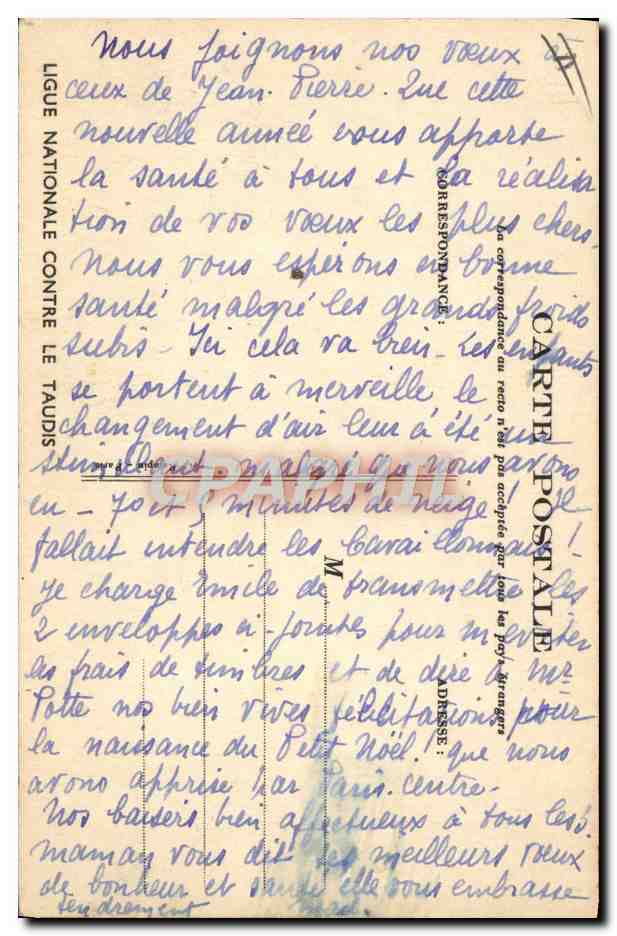 Nous joignons nos vœux à
ceux de Jean-Pierre. Que cette
nouvelle année vous apporte
la santé à tous et la réalisa
tion de vos vœux les plus chers.
Nous vous espérons en bonne
santé malgré les grands froids
subis - Ici cela va bien - Les enfants
se portent à merveille le
changement d'air leur a été un
stimulant malgré que nous avons
en - 10 et 5 minutes de neige! Il
fallait entendre les Cavaillonnais!
Je charge Emile de transmettre les
2 enveloppes ci-jointes pour m'éviter
les frais de timbres et de dire à Mr
Potte nos bien vives félicitations pour
la naissance du Petit Noël! que nous
avons apprise par Paris-centre -
Nos baisers bien affectueux à tous les 3.
maman vous dit ses meilleurs vœux
de bonheur et santé elle vous embrasse
tendrement
LIGUE NATIONALE CONTRE LE TAUDIS
CARTE POSTALE
La correspondance au recto n'est pas acceptée par tous les pays étrangers
CORRESPONDANCE :
ADRESSE :
M
Paris
CPAPHIL